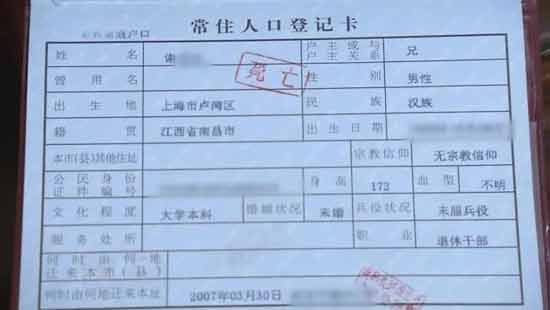 常住人口登记卡
姓名 谢 户主或与户主关系 兄
死亡
曾用名 性别 男性
出生地 上海市卢湾区 民族 汉族
籍贯 江西省南昌市 出生日期
本市(县)其他住址 宗教信仰 无宗教信仰
公民身份证件编号 身高 172 血型 不明
文化程度 大学本科 婚姻状况 未婚 兵役状况 未服兵役
服务处所 职业 退休干部
何时由何地迁来本市(县)
何时由何地迁来本址 2007年03月30日